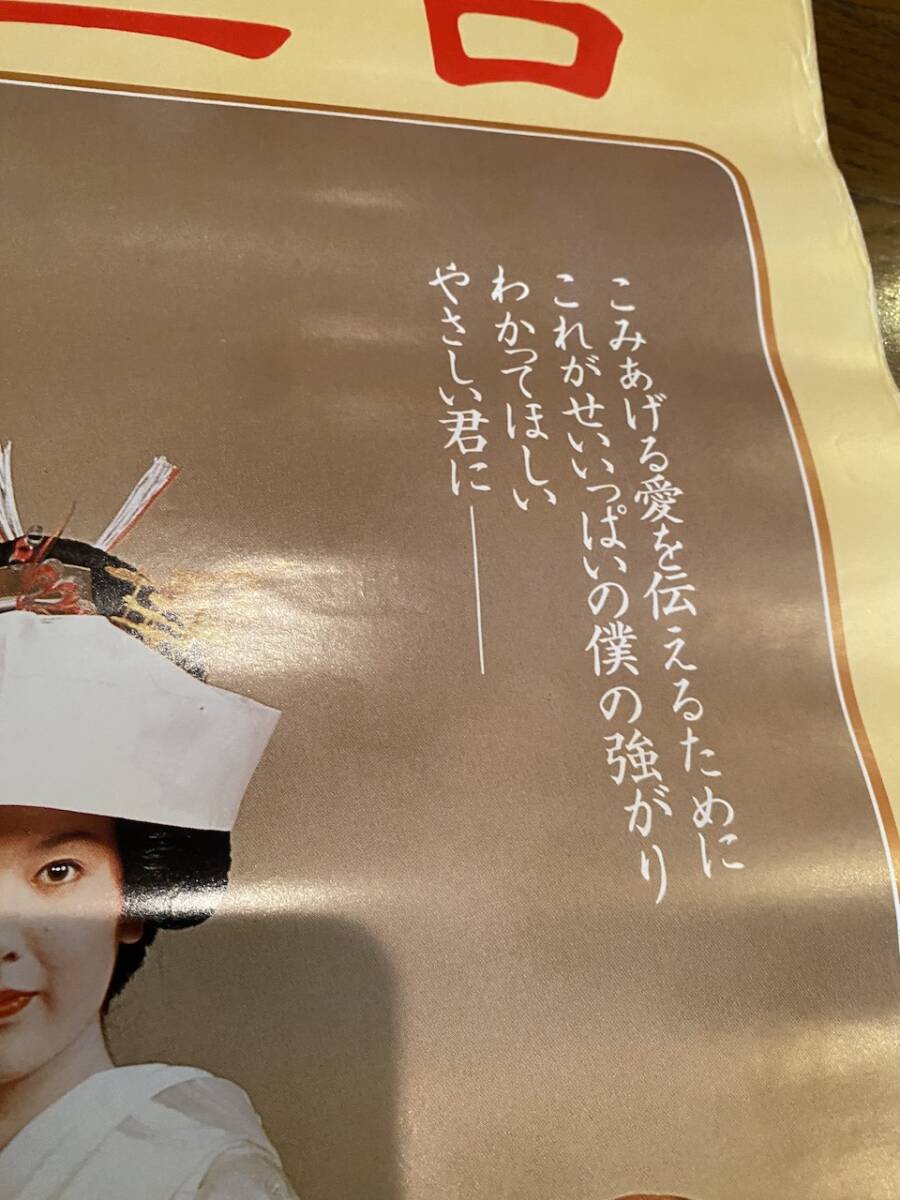 こみあげる愛を伝えるために
これがせいいっぱいの僕の強がり
わかってほしい
やさしい君に――